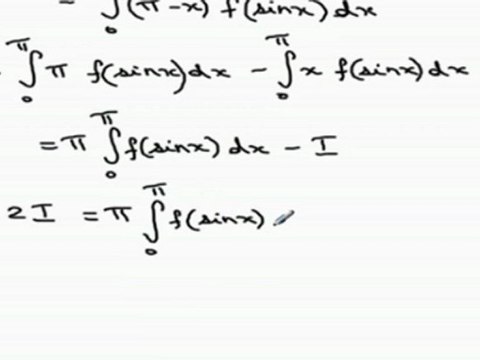 = ∫₀ (π-x) f(sinx) dx
∫₀^π π f(sinx)dx - ∫₀^π x f(sinx)dx
= π ∫₀^π f(sinx) dx - I
2I = π ∫₀^π f(sinx)